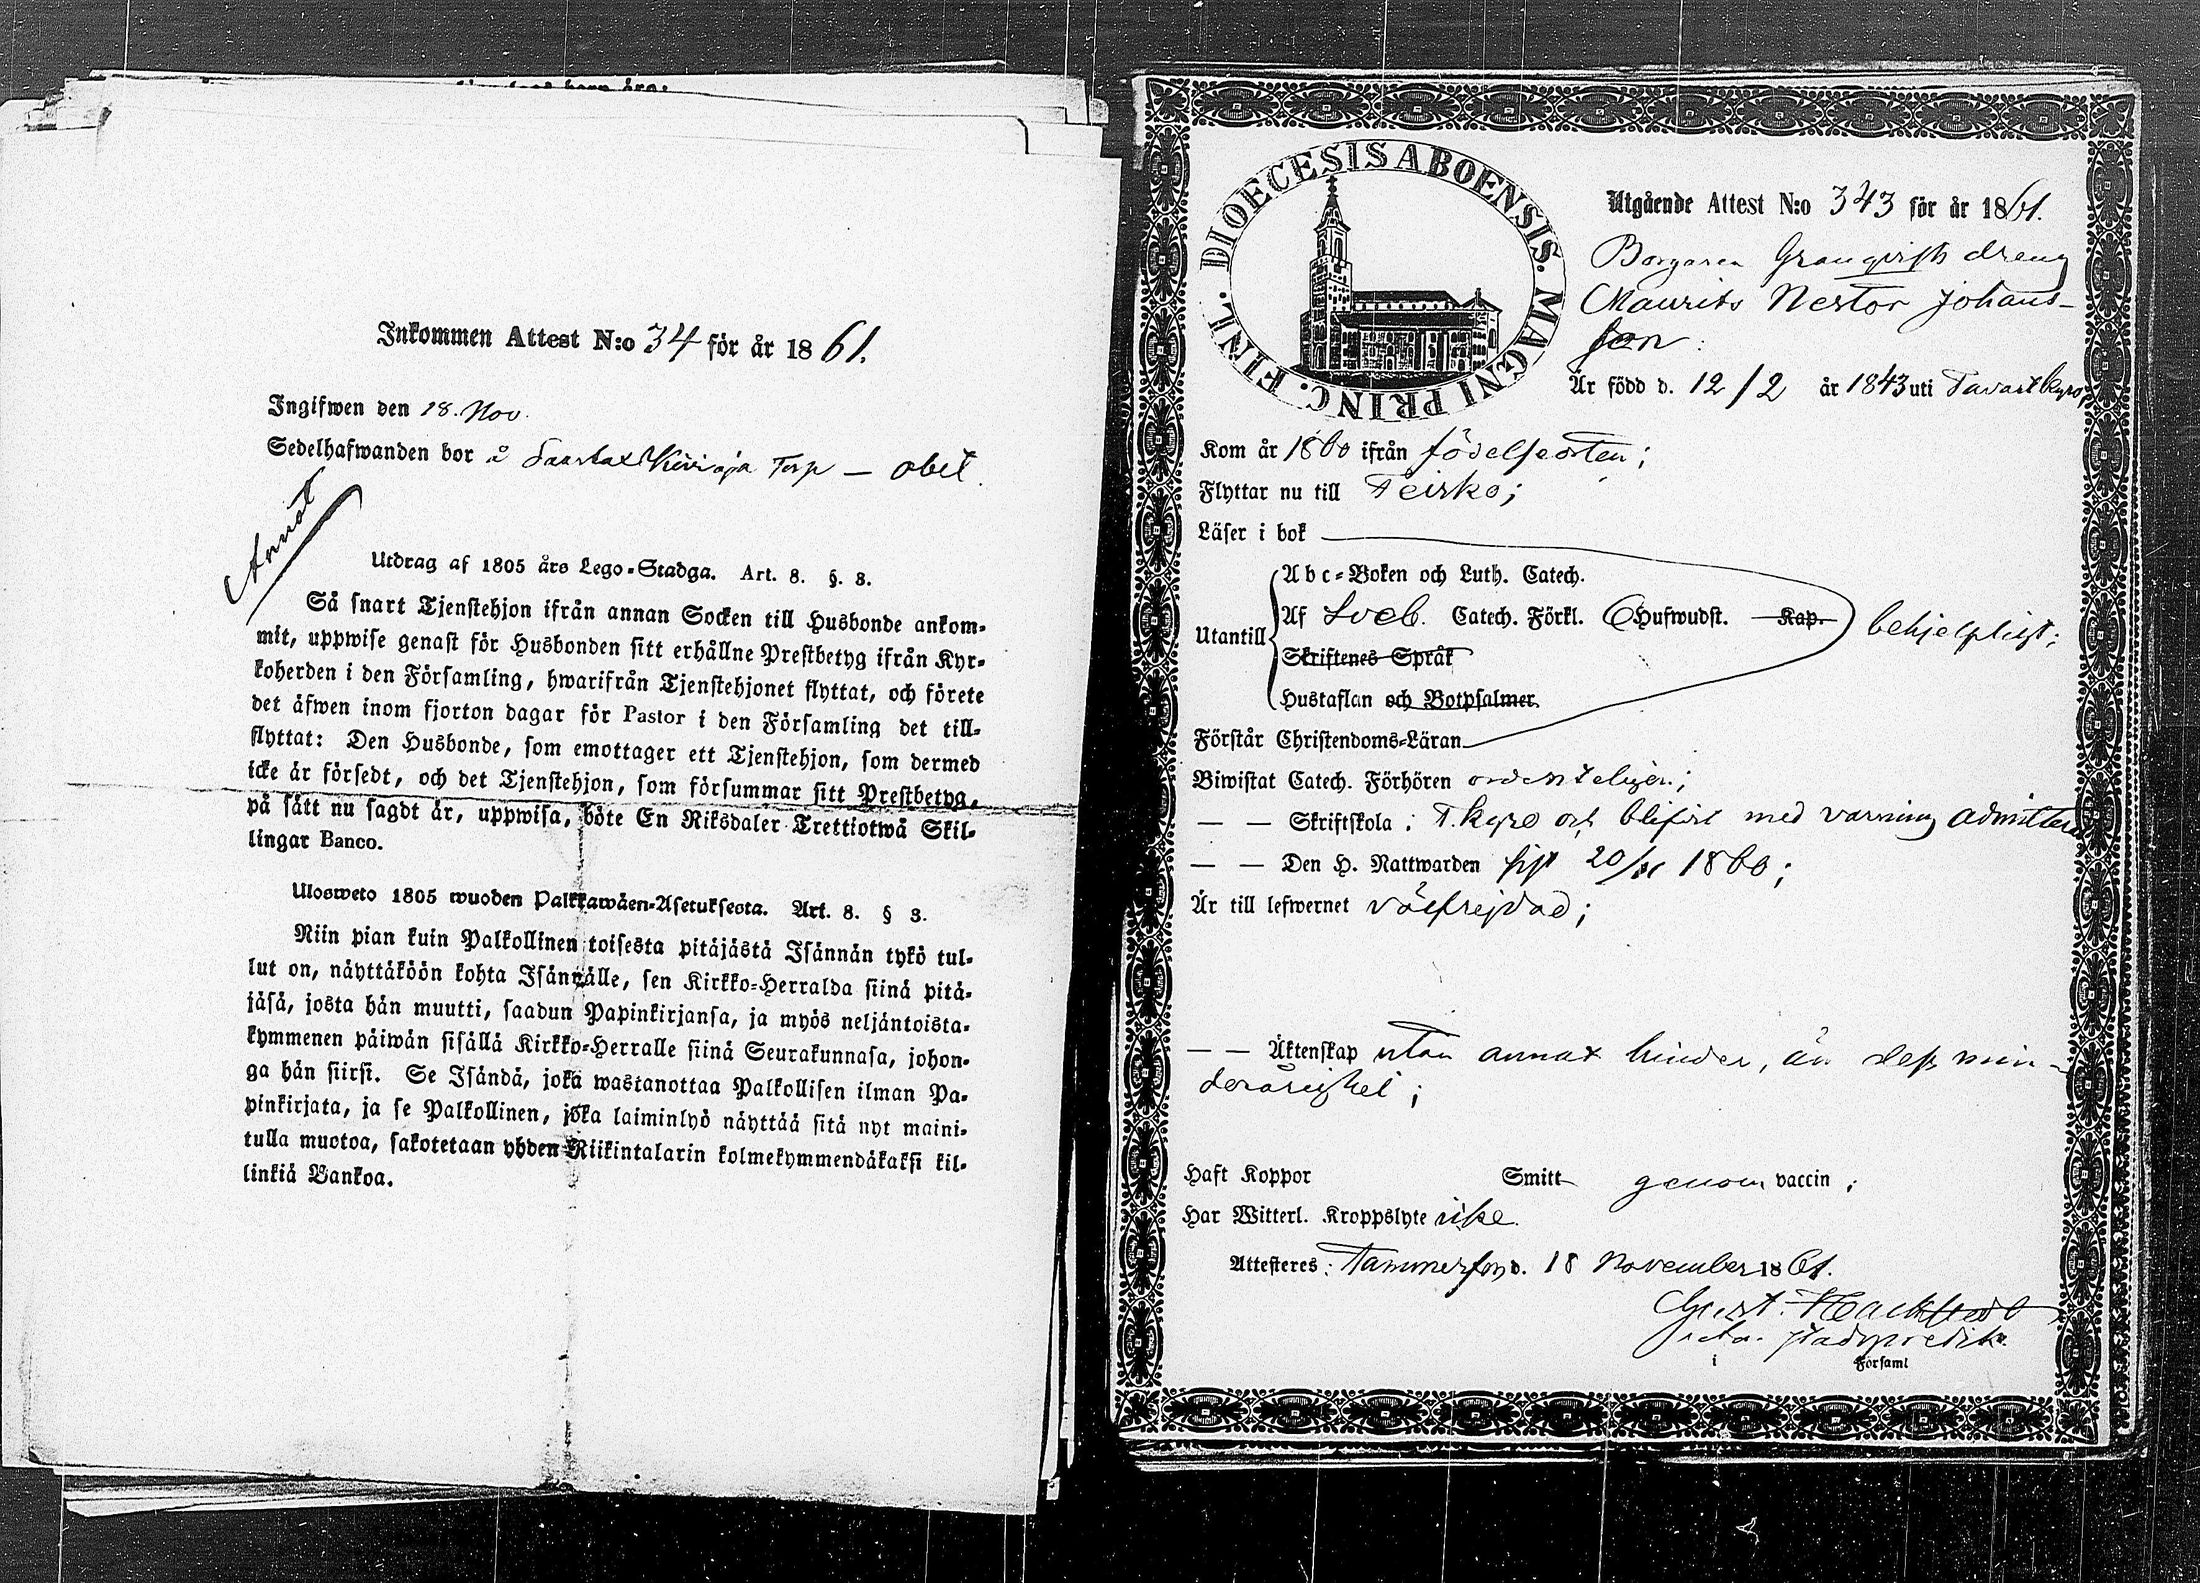 Inkommen Attest N:o 34 för år 1861.
Ingifwen den 18. Nov.
Sedelhafwanden bor å Torp — obet.
Annot
Utdrag af 1805 års Lego-Stadga. Art. 8. §. 3.
Så snart Tjenstehjon ifrån annan Socken till Husbonde ankom-
mit, uppwise genast för Husbonden sitt erhållne Prestbetyg ifrån Kyr-
koherden i den Församling, hwarifrån Tjenstehjonet flyttat, och förete
det äfwen inom fjorton dagar för Pastor i den Församling det till-
flyttat: Den Husbonde, som emottager ett Tjenstehjon, som dermed
icke är försedt, och det Tjenstehjon, som försummar sitt Prestbetyg,
på sätt nu sagdt är, uppwisa, böte En Riksdaler Trettiotwå Skil-
lingar Banco.
Ulosweto 1805 wuoden Palkkawäen-Asetuksesta. Art. 8. § 3.
Niin pian kuin Palkollinen toisesta pitäjästä Isännän tykö tul-
lut on, näyttäköön kohta Isännälle, sen Kirkko-Herralda siinä pitä-
jäsä, josta hän muutti, saadun Papinkirjansa, ja myös neljäntoista-
kymmenen päiwän sisällä Kirkko-Herralle siinä Seurakunnasa, johon-
ga hän siirsi. Se Isändä, joka wastanottaa Palkollisen ilman Pa-
pinkirjata, ja se Palkollinen, joka laiminlyö näyttää sitä nyt maini-
tulla muotoa, sakotetaan yhden Riikintalarin kolmekymmendäkaksi kil-
linkiä Bankoa.
DIOECESIS ABOENSIS. MAGNI PRINC. FINL.
Utgående Attest N:o 343 för år 1861.
Borgaren Granqvists dreng
Maurits Nestor Johans-
son:
Är född d. 12/2 år 1843 uti Tavastkyro;
Kom år 1860 ifrån födelseorten;
Flyttar nu till Teisko;
Läser i bok
Abc-Boken och Luth. Catech.
Utantill Af Sveb. Catech. Förkl. 6 Hufwudst. Kap. behjelpligt;
Skriftenes Språk
Hustaflan och Botpsalmer.
Förstår Christendoms-Läran
Biwistat Catech. Förhören ordenteligen;
— — Skriftskola: T.kyro och blifvit med varning admitterad
— — Den H. Nattwarden sist 20/11 1860;
Är till lefwernet välfrejdad;
— — Äktenskap utan annat hinder, än dess min-
derårighet;
Haft Koppor Smitt genom vaccin;
Har Witterl. Kroppslyte icke.
Attesteres: Tammerfors d. 18 November 1861.
Gust. Hackstedt
stadspredik.
i Församl